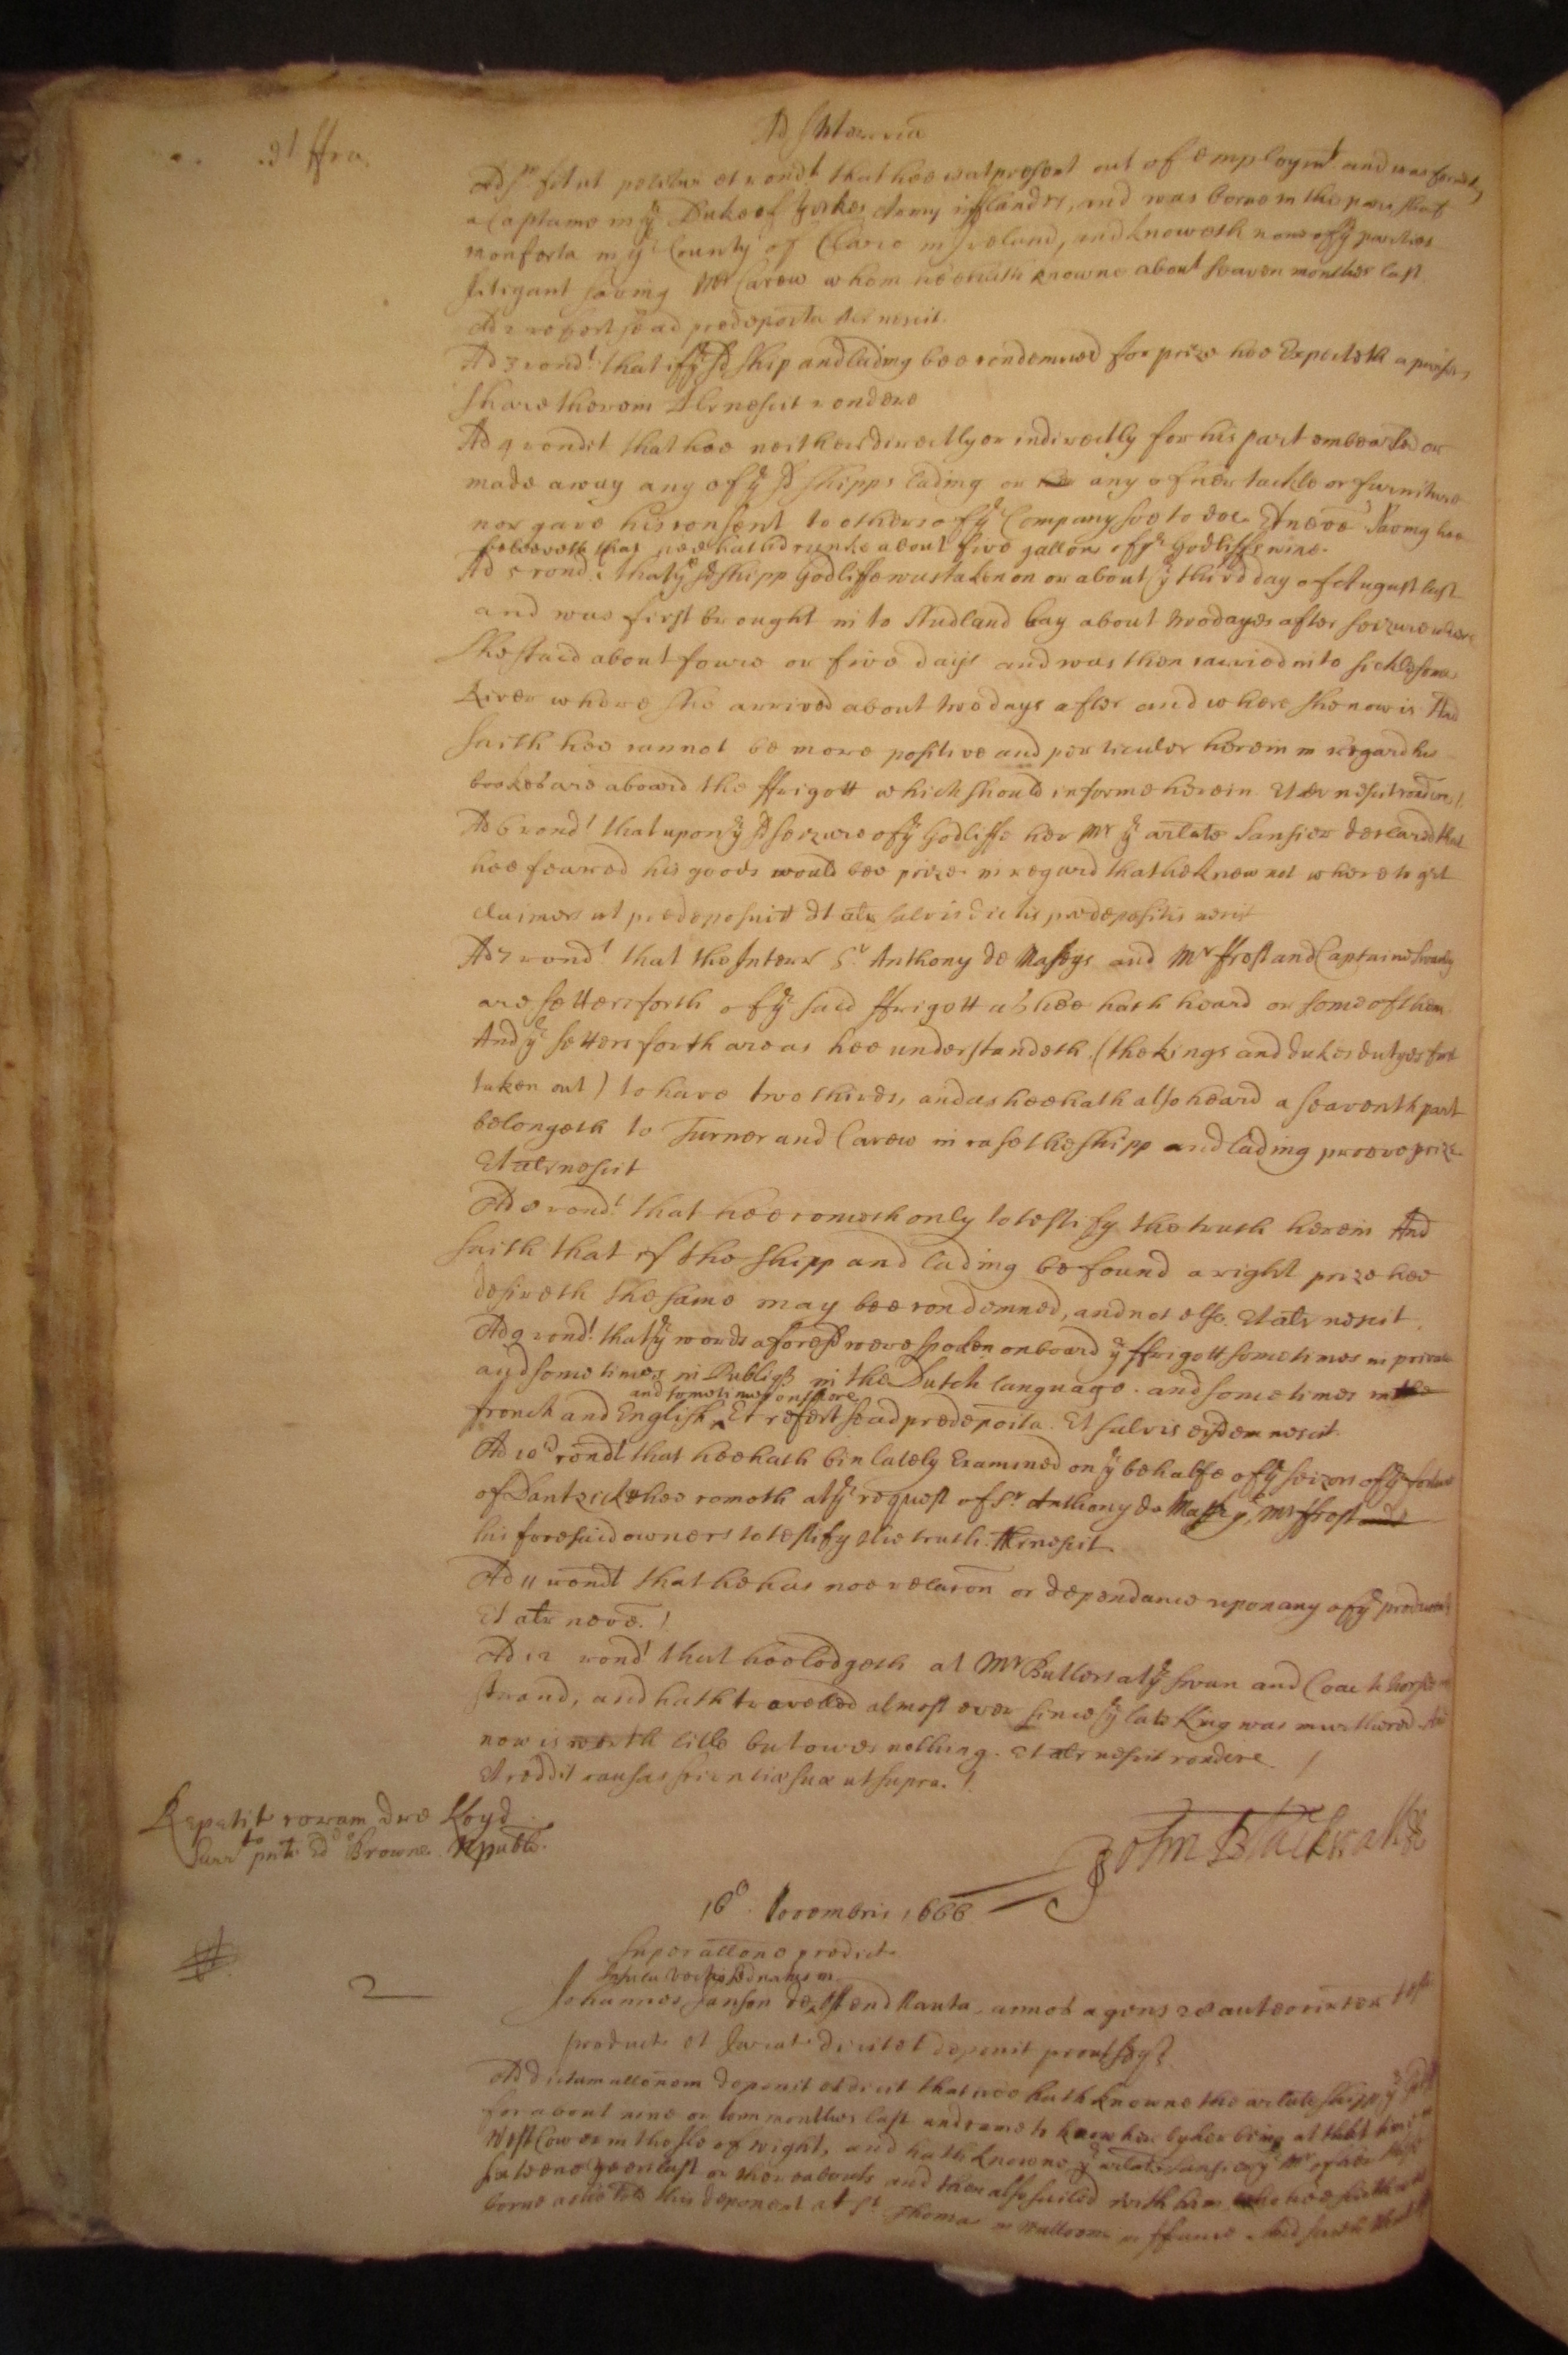 Ad Interria
Ad p<sup>m</sup> Int ut petitur et rondt that hee is at present out of employm<sup>t</sup> and was formerly
a Captaine in y<sup>e</sup> Duke of Yorkes Army in fflandrs, and was borne in the parish of
monforta in y<sup>e</sup> County of Clare in Ireland, and knoweth none of y<sup>e</sup> parties
litigant saving M<sup>r</sup> Carew whom hee hath knowne about seaven monthes last
Ad 2 refert se ad predeposita alr nescit.
Ad 3 rond<sup>t</sup> that if y<sup>e</sup> sd ship and lading bee condemned for prize hee Expecteth a pursers
share therein Alr nescit rondere
Ad 4 rondt that hee neither directly or indirectly for his part embeazled or
made away any of y<sup>e</sup> sd shipps lading or any of her tackle or furniture
nor gave his consent to others of y<sup>e</sup> Company soe to doe. Et neve Saving hee
beleeveth that hee hath drunke about five gallons of y<sup>e</sup> Godliffs wine.
Ad 5 rond<sup>t</sup> that y<sup>e</sup> sd shipp Godliffe was taken on or about y<sup>e</sup> third day of August last
and was first brought in to Studland bay about two dayes after seizure where
she staid about foure or five dayes and was then carried into
River where she arrived about two days after and where she now is And
saith hee cannot be more positive and perticular herein in regard his
bookes are aboard the ffrigott which should informe herein. Et alr nescit rondere
Ad 6 rond<sup>t</sup> that upon y<sup>e</sup> sd seizure of y<sup>e</sup> Godliffe her M<sup>r</sup> y<sup>e</sup> arlate Sansier declared that
hee feared his goods would bee prize in regard that he knew not where to get
claimers ut predeposuit Et alr salvis dictis predepositis nescit
Ad 7 rond<sup>t</sup> that the Interr S<sup>r</sup> Anthony de and M<sup>r</sup> ffrost and Captaine
are setters forth of y<sup>e</sup> said ffrigott as hee hath heard or some of them
And y<sup>e</sup> setters forth are as hee understandeth (the kings and dukes dutyes first
taken out) to have two thirds, and as hee hath also heard a seaventh part
belongeth to Turner and Carew in case the shipp and lading proove prize
Et alr nescit
Ad 8 rond<sup>t</sup> that hee cometh only to testify the truth herein And
saith that if the shipp and lading be found a right prize hee
desireth the same may bee condemned, and not else. Et alr nescit.
Ad 9 rond<sup>t</sup> that y<sup>e</sup> words aforesd were spoken on board y<sup>e</sup> ffrigott sometimes in private
and sometimes in Publiq in the Dutch language. and sometimes in the
and sometimes on shore
french and English, Et refert se ad predeposita. Et salvis eisdem nescit
Ad 10 rondt that hee hath bin lately Examined on y<sup>e</sup> behalfe of y<sup>e</sup> seizors of y<sup>e</sup>
of Dantzick hee cometh at y<sup>e</sup> request of S<sup>r</sup> Anthony de M<sup>r</sup> ffrost and
his foresaid owners to testify the truth. Alr nescit
Ad 11 rondt that he has noe relacon or dependance upon any of y<sup>e</sup> producents
Et alr neve.
Ad 12 rond<sup>t</sup> that hee lodgeth at M<sup>r</sup> Butlers at y<sup>e</sup> Swan and Coach horse in
strand, and hath travelled almost ever since y<sup>e</sup> late King was murthered And
now is worth little but owes nothing. Et alr nescit rondere
Et reddit causas scientiæ suæ ut supra.
Repetit coram dno Lloyd
Surr<sup>to</sup> pnte Ed<sup>o</sup> Browne. N publ.
John Blackwall
16<sup>o</sup> Novembris 1666
Super allone predict
2
Johannes Janson de Ostend Nauta annos agens 28 aut eo circiter test
product et Jurat dicit et deponit prout seq<sup>r</sup>
Ad dictam allonem deponit et dicit that hee hath knowne the arlate shipp y<sup>e</sup>
for about nine or tenn monthes last and came to know her by her being at that time at
West Cowes in the Isle of wight, and hath knowne y<sup>e</sup> arlate Sansier y<sup>e</sup> M<sup>r</sup> of her these
sixteene yeeres last or thereabouts and then also sailed with him who hee saith was
borne as he told this deponent at S<sup>t</sup> Thomas in in ffrance And saith that